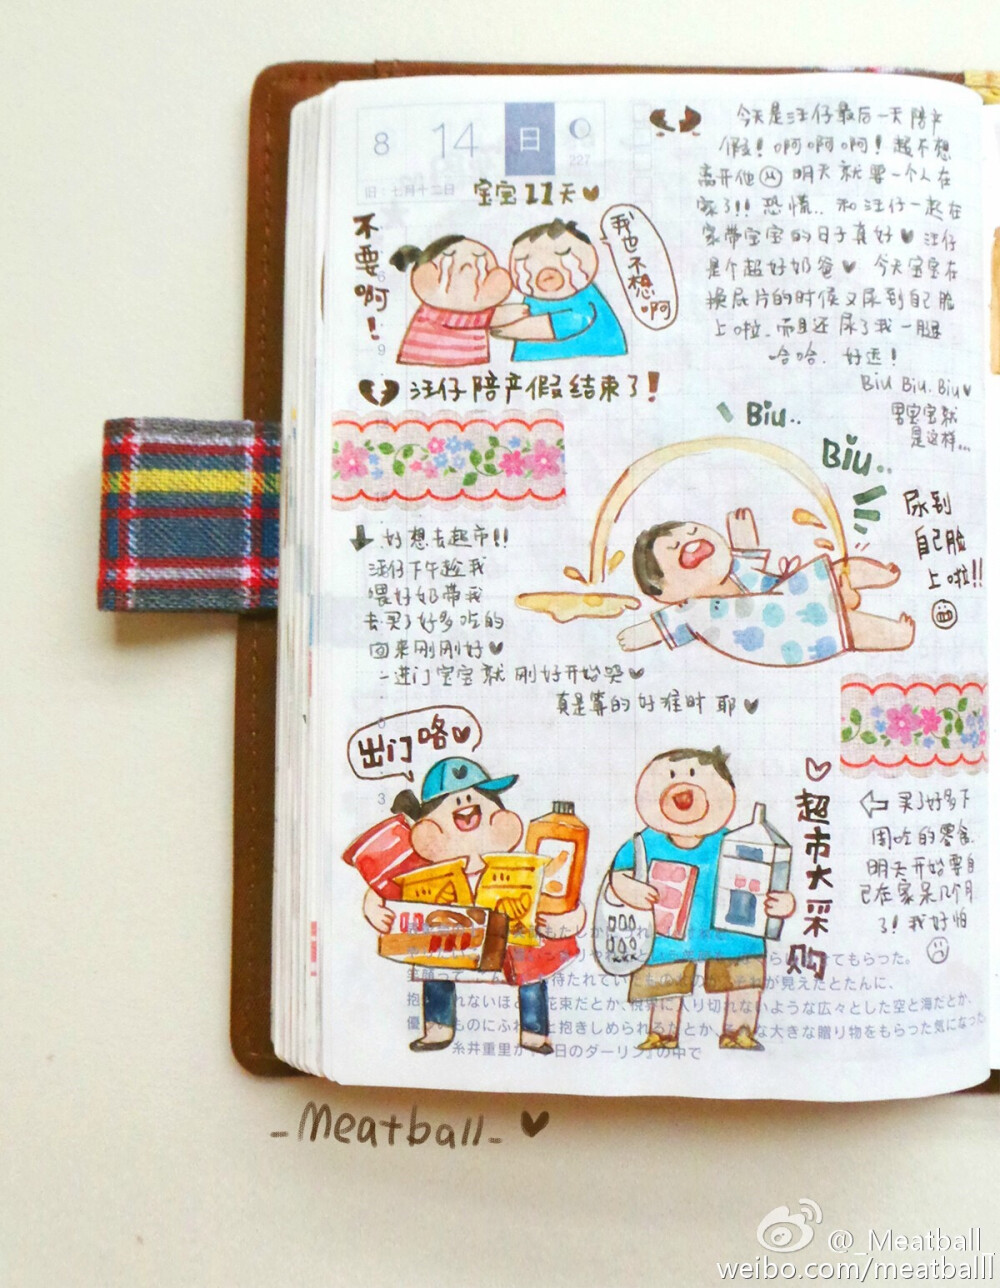 8 14 日
227
旧:七月十二日
宝宝11天♥
不要啊!
我也不想啊
汪仔陪产假结束了!
今天是汪仔最后一天陪产
假!啊啊啊!超不想
离开他 明天就要一个人在
家了!!恐慌..和汪仔一起在
家带宝宝的日子真好♥汪仔
是个超好奶爸♥ 今天宝宝在
换尿片的时候又尿到自己脸
上啦.而且还尿了我一腿
哈哈.好远!
Biu Biu.Biu♥
男宝宝就
是这样...
Biu..
Biu..
尿到
自己脸
上啦!!
好想去超市!!
汪仔下午趁我
喂好奶带我
去买了好多吃的
回来刚刚好♥
一进门宝宝就刚好开始哭♥
真是算的好准时耶♥
出门咯♥
♡超市大采购
买了好多下
周吃的零食.
明天开始要自
己在家呆几个月
了!我好怕
3
6
9
笑顔って
待たれていた
が見えたとたんに、
抱
れないほど
花束だとか、視界に入り切れないような広々とした空と海だとか、
優
ものにふわっと抱きしめられるだとか、
な大きな贈り物をもらった気になった
糸井重里が『今日のダーリン』の中で
_Meatball_♥
@_Meatball_
weibo.com/meatballl